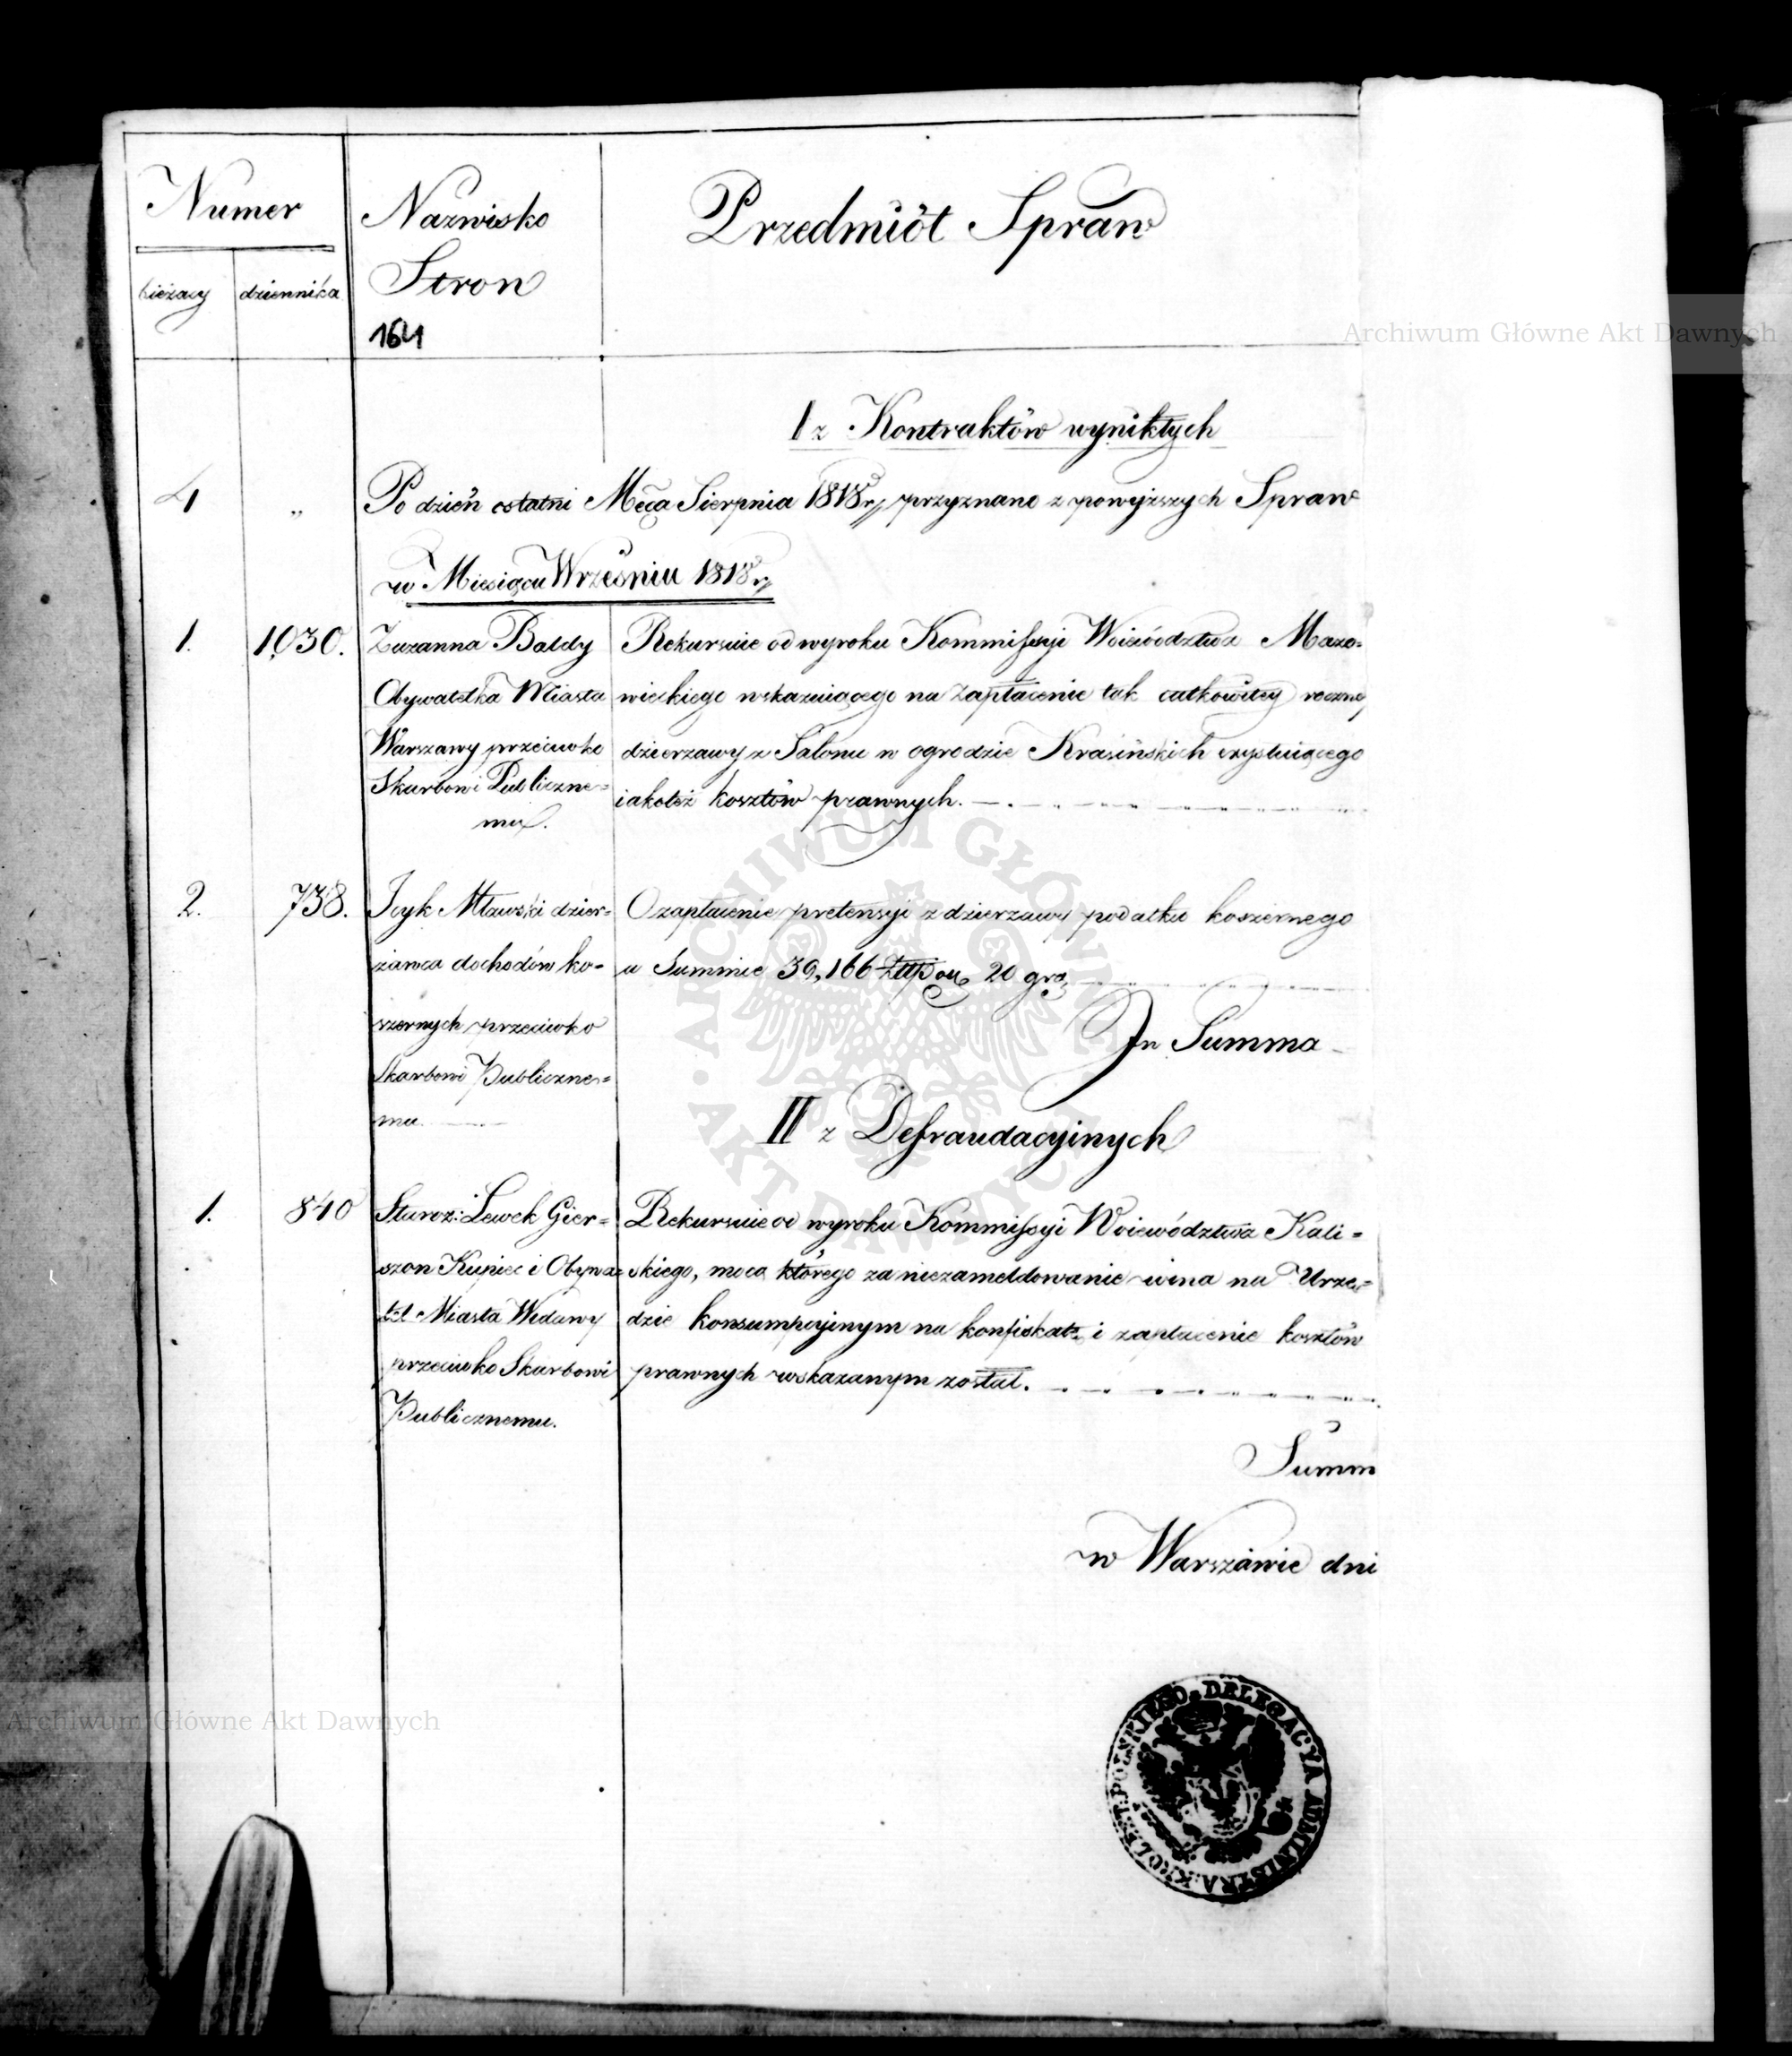 Numer
Nazwisko
Stron
Przedmiót Spraw
bieżący
dziennika
164
Archiwum Główne Akt Dawnych
I z Kontraktów wynikłych
4 " Po dzień ostatni Mca Sierpnia 1818 r. przyznano z powyższych Spraw
w Miesiącu Wrześniu 1818 r.
1. 1030. Zuzanna Baldy
Obywatelka Miasta
Warszawy przeciwko
Skarbowi Publiczne=
mu.
Rekursuie od wyroku Kommissyi Woiewództwa Mazo=
wieckiego wskazuiącego na zapłacenie tak całkowitey roczney
dzierzawy z Salonu w ogrodzie Krasińskich
iakoteż kosztów prawnych.
2. 738. Icyk Mławski dzier=
żawca dochodów ko=
szernych przeciwko
Skarbowi Publiczne=
mu.
O zapłacenie pretensyi z dzierzawy podatku koszernego
w Summie 39,166 Złtp. 20 gro.
In Summa
II z Defraudacyinych
1. 840 Staroz: Lewek Gier=
szon Kupiec i Obywa=
tel Miasta Widawy
przeciwko Skarbowi
Publicznemu.
Rekursuie od wyroku Kommissyi Woiewództwa Kali=
skiego, mocą którego za niezameldowanie wina na Urzę=
dzie konsumpcyinym na konfiskatę i zapłacenie kosztów
prawnych wskazanym został.
Summ
w Warszawie dni
KROLEST: POLSKIEGO. DELEGACYA ADMINISTRA.
ARCHIWUM GŁÓWNE AKT DAWNYCH
Archiwum Główne Akt Dawnych